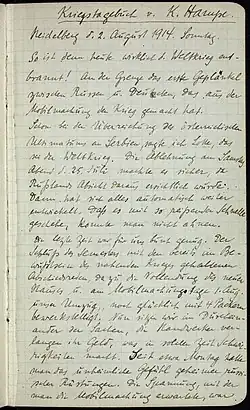 Kriegstagebuch v. K. Hampe.
Heidelberg d. 2. August 1914. Sonntag.
So ist denn heute wirklich d. Weltkrieg ent-
brannt! An der Grenze das erste Geplänkel
zwischen Russen u. Deutschen, das aus der
Mobilmachung den Krieg gemacht hat.
Schon bei der Überreichung des österreichischen
Ultimatums an Serbien sagte ich Lotte, das
sei der Weltkrieg. Die Ablehnung am Samstag
Abend d. 25. Juli machte es sicher, da
Rußlands Absicht daraus ersichtlich wurde.
Dann hat sich alles automatisch weiter
entwickelt. Daß es mit so rasender Schnelle
geschehe, konnte man nicht ahnen.
Die letzte Zeit war für uns bunt genug. Der
Schluß des Semesters mit den bereits im Be-
wußtsein des nahenden Krieges gehaltenen
Abschiedsreden. Dazu d. Vollendung des neuen
Hauses u. am Mobilmachungstage selbst
unser Umzug, noch glücklich mit 4 Packern
bewerkstelligt. Nun sitzen wir im Durchein-
ander der Sachen, die Handwerker ver-
langen ihr Geld, was in solcher Zeit Schwie-
rigkeiten macht. Seit etwa Montag hatte
man das unheimliche Gefühl geheimer russi-
scher Rüstungen. Die Spannung, mit der
man die Mobilmachung erwartete, war